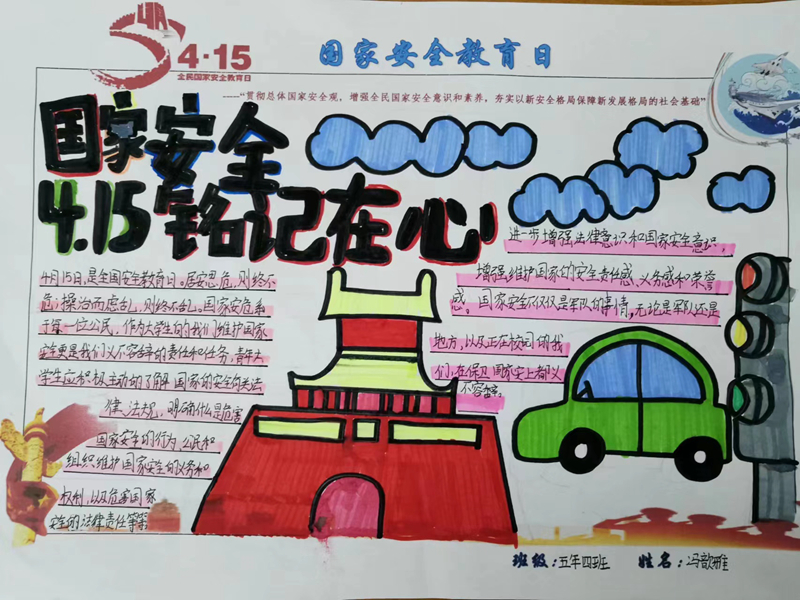 4·15
全民国家安全教育日
国家安全教育日
——“贯彻总体国家安全观，增强全民国家安全意识和素养，夯实以新安全格局保障新发展格局的社会基础”
国家安全
4.15铭记在心
4月15日，是全国安全教育日。居安思危，则终不
危；操治而虑乱，则终不乱。国家安危系
于每一位公民，作为大学生的我们维护国家
安全更是我们义不容辞的责任和任务，青年大
学生应积极主动的了解国家的安全相关法
律、法规，明确什么是危害
国家安全的行为、公民和
组织维护国家安全的义务和
权利，以及危害国家
安全的法律责任等等
进一步增强法律意识和国家安全意识，
增强维护国家的安全责任感、义务感和荣誉
感。国家安全不仅仅是军队的事情，无论是军队还是
地方，以及正在校园的我
们，在保卫国家安上都义
不容辞。
班级：五年四班 姓名：冯歆雅